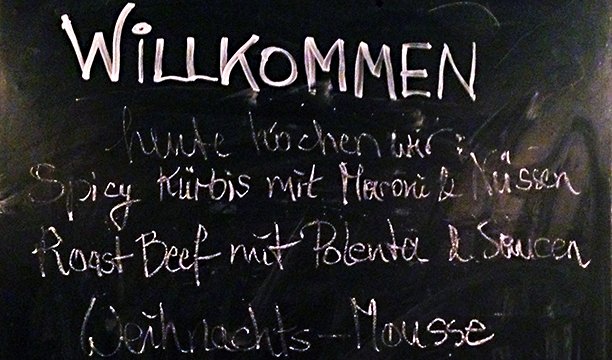 WiLLKOMMEN
heute kochen wir:
Spicy Kürbis mit Maroni & Nüssen
Roast Beef mit Polenta & Saucen
Weihnachts-Mousse